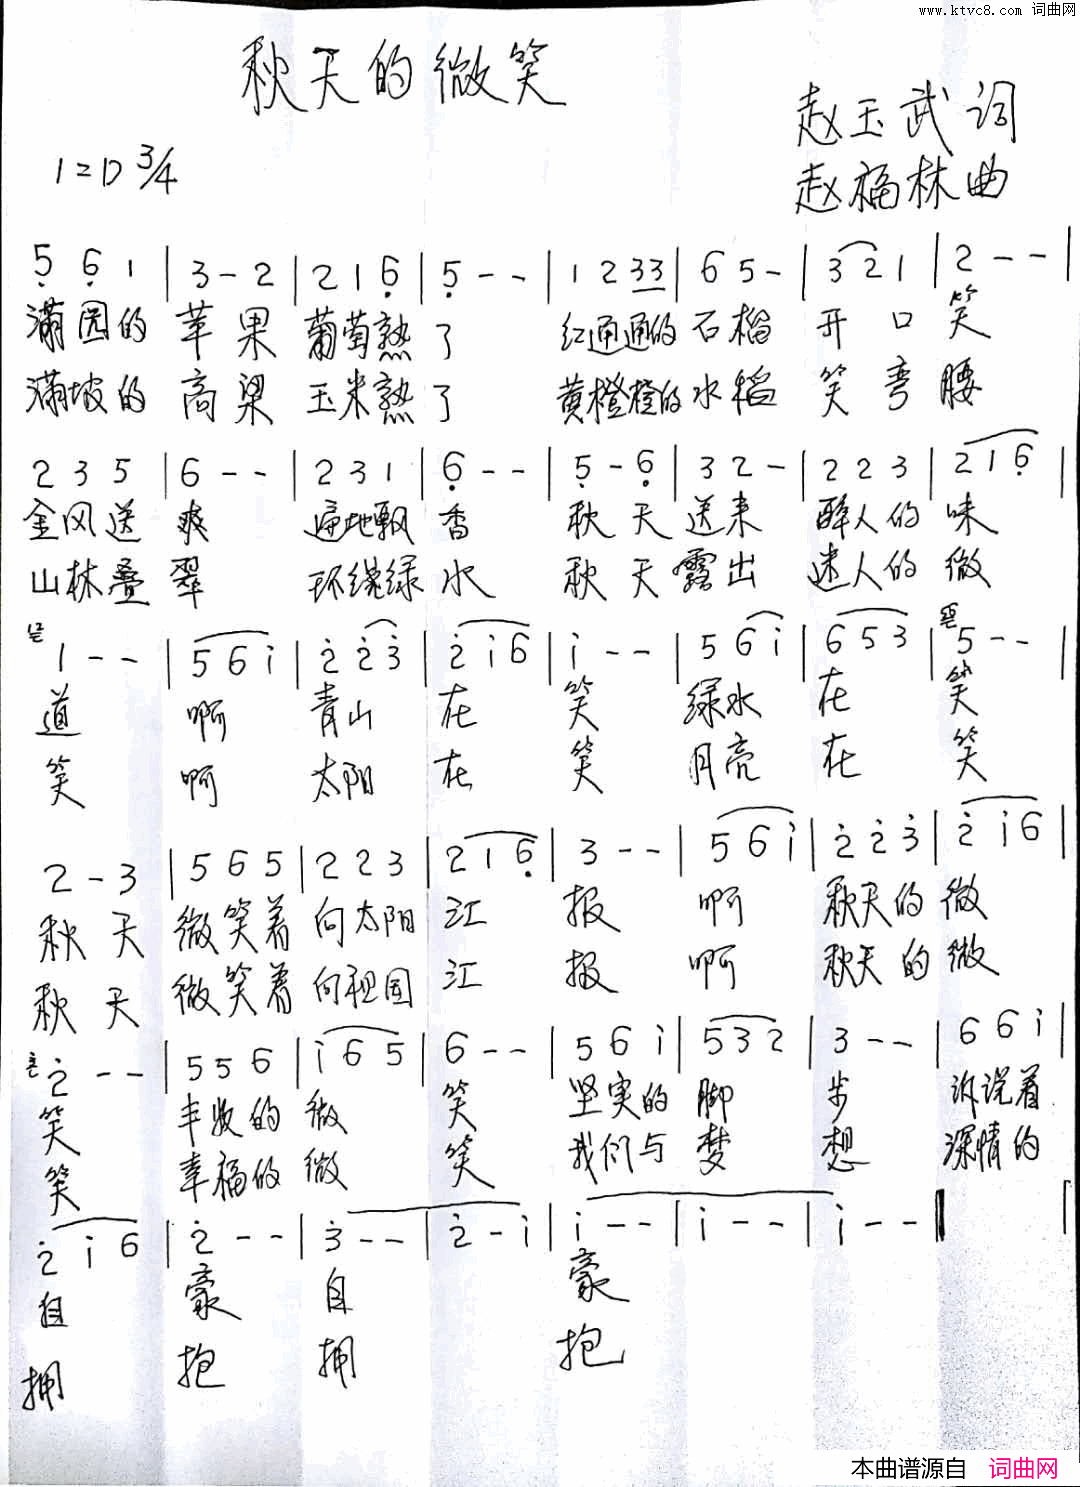 www.ktvc8.com 词曲网
秋天的微笑
赵玉武词
1=D 3/4
赵福林曲
5 6 1 | 3 - 2 | 2 1 6 | 5 - - | 1 2 3 3 | 6 5 - | 3 2 1 | 2 - - |
满园的 苹果 葡萄熟了 红通通的石榴 开口笑
满坡的 高粱 玉米熟了 黄橙橙的水稻 笑弯腰
2 3 5 | 6 - - | 2 3 1 | 6 - - | 5 - 6 | 3 2 - | 2 2 3 | 2 1 6 |
金风送爽 遍地飘香 秋天送来 醉人的味
山林叠翠 环绕绿水 秋天露出 迷人的微
1 - - | 5 6 i | 2 2 3 | 2 i 6 | i - - | 5 6 i | 6 5 3 | 5 - - |
道 啊 青山在笑 绿水在笑
笑 啊 太阳在笑 月亮在笑
2 - 3 | 5 6 5 | 2 2 3 | 2 1 6 | 3 - - | 5 6 i | 2 2 3 | 2 i 6 |
秋天 微笑着 向太阳 汇报 啊 秋天的微
秋天 微笑着 向祖国 汇报 啊 秋天的微
2 - - | 5 5 6 | i 6 5 | 6 - - | 5 6 i | 5 3 2 | 3 - - | 6 6 i
笑 丰收的微笑 坚实的脚步 诉说着
笑 幸福的微笑 我们与梦想 深情的
2 i 6 | 2 - - | 3 - - | 2 - i | i - - | i - - | i - -
自豪 自豪
拥抱 拥抱
本曲谱源自 词曲网